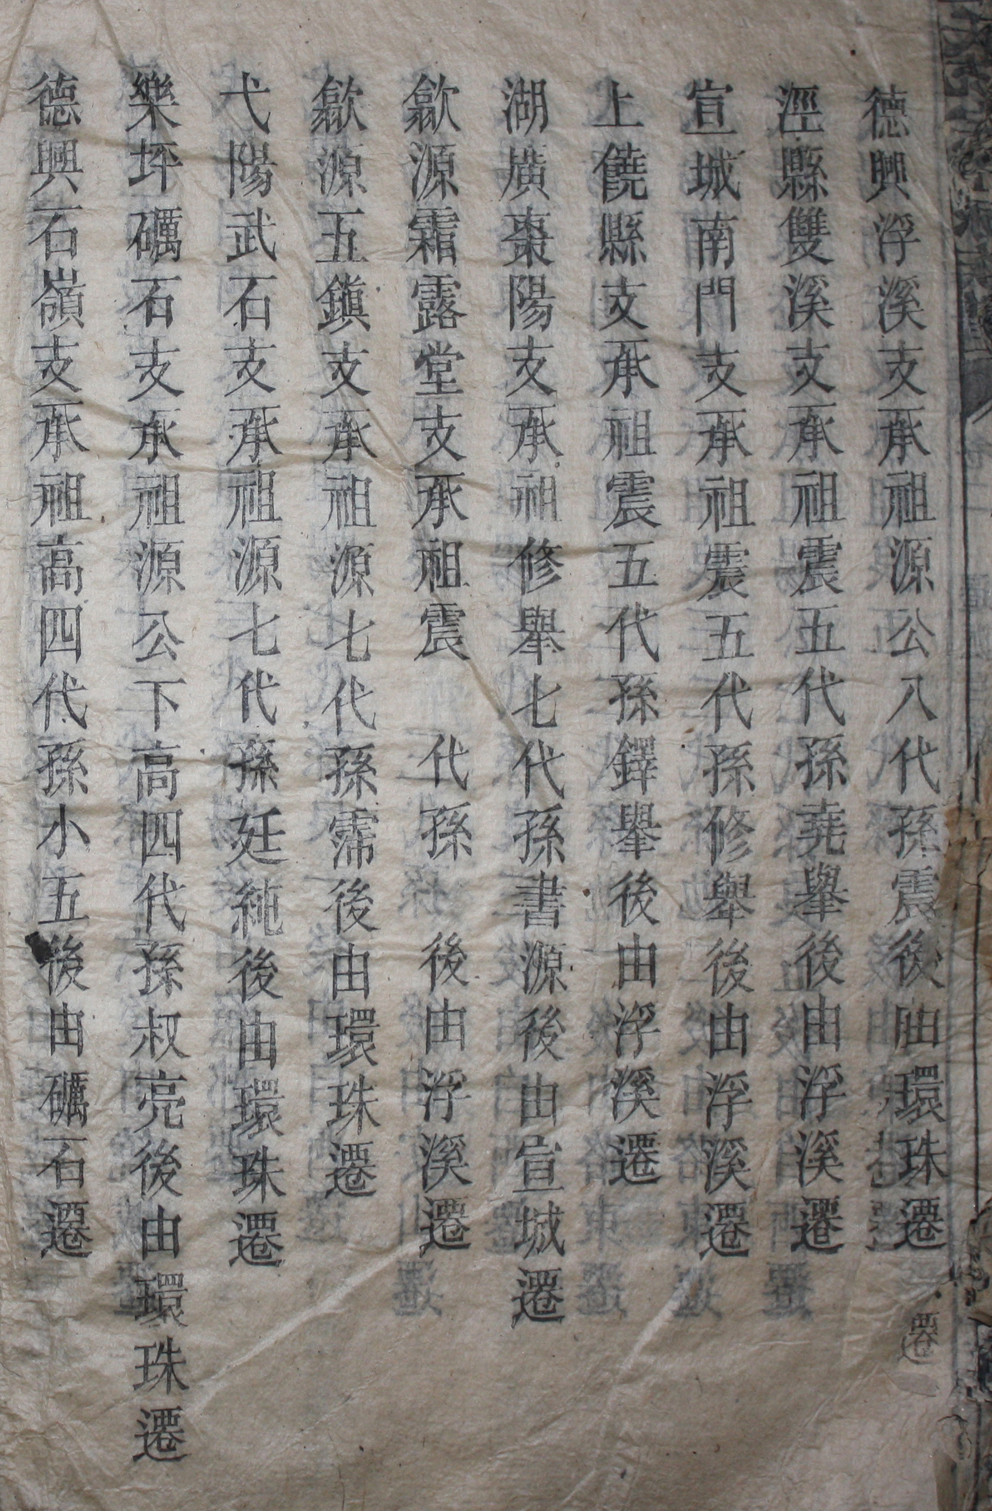 德興浮溪支承祖源公八代孫震後由環珠遷
遷
涇縣雙溪支承祖震五代孫堯舉後由浮溪遷
宣城南門支承祖震五代孫修舉後由浮溪遷
上饒縣支承祖震五代孫鐸舉後由浮溪遷
湖廣棗陽支承祖修舉七代孫書源後由宣城遷
歙源霜露堂支承祖震 代孫 後由浮溪遷
歙源五鎭支承祖源七代孫霈後由環珠遷
弋陽武石支承祖源七代孫廷純後由環珠遷
樂坪礪石支承祖源公下高四代孫叔亮後由環珠遷
德興石嶺支承祖高四代孫小五後由礪石遷